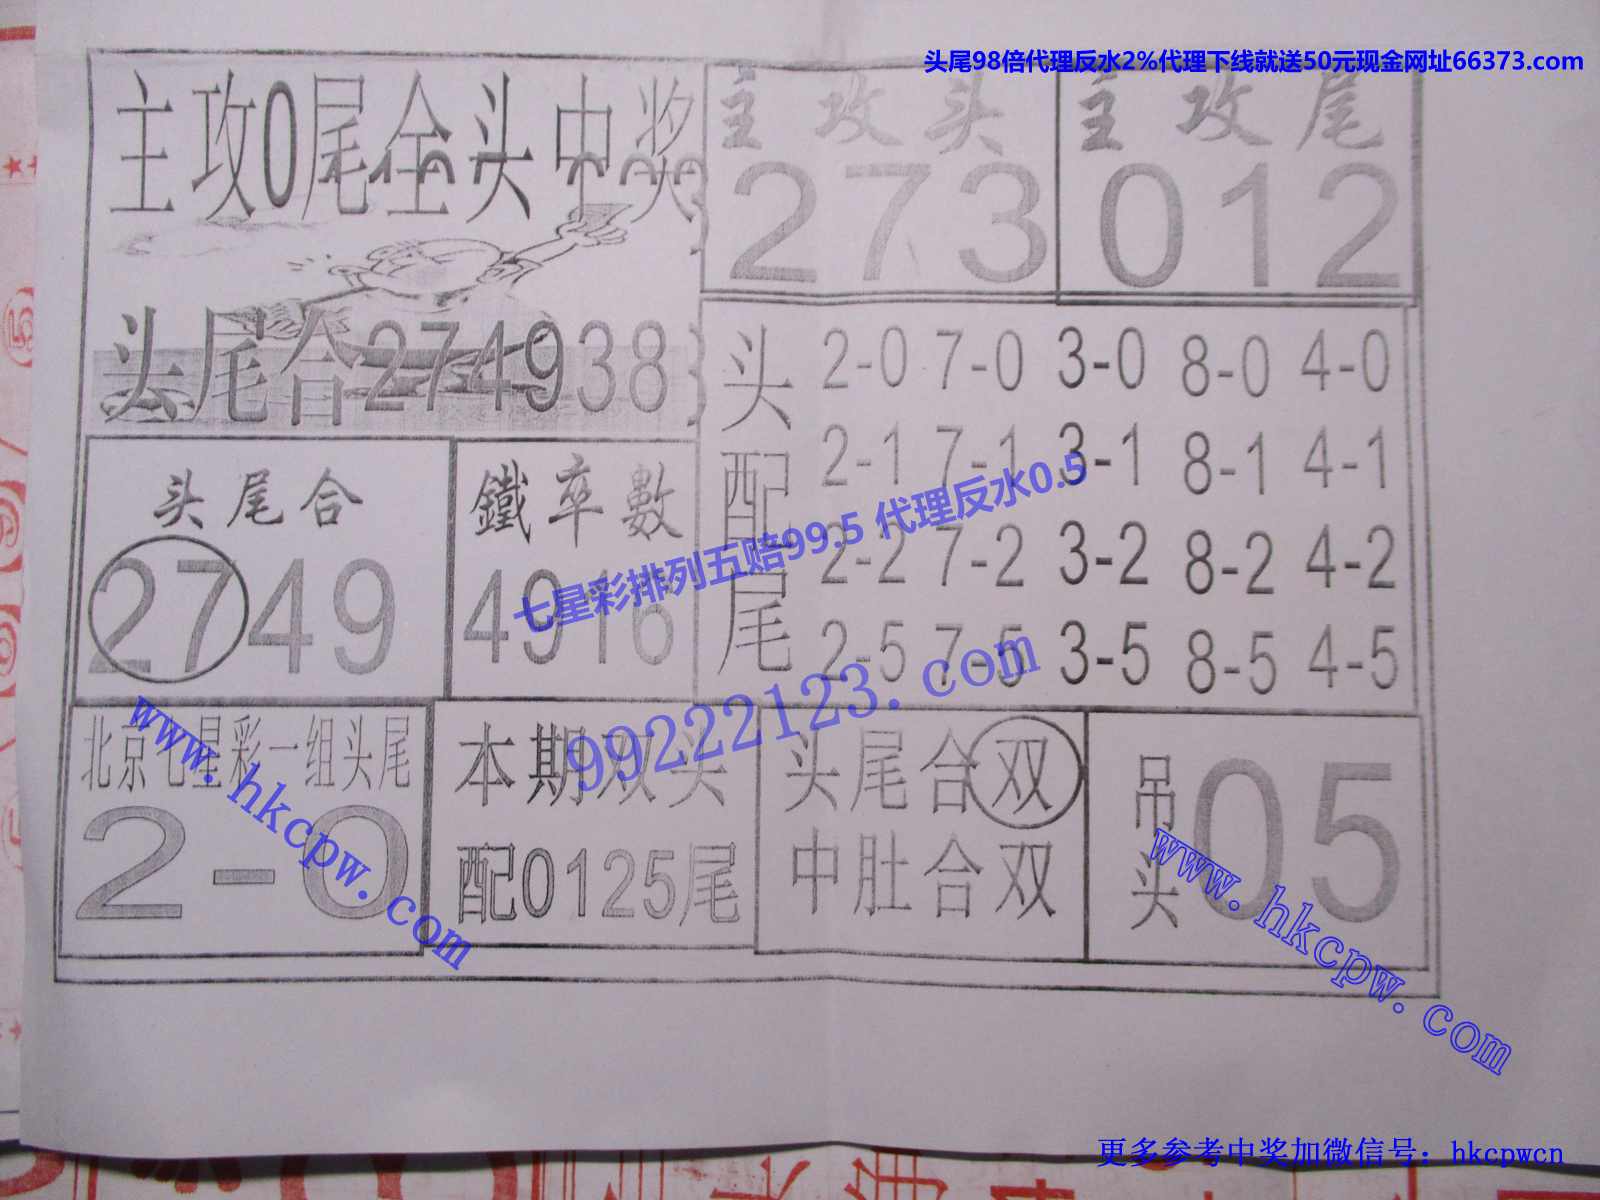 头尾98倍代理反水2%代理下线就送50元现金网址66373.com
主攻0尾全头中奖
主攻头
273
主攻尾
012
头尾合274938
头配尾
2-0 7-0 3-0 8-0 4-0
2-1 7-1 3-1 8-1 4-1
2-2 7-2 3-2 8-2 4-2
2-5 7-5 3-5 8-5 4-5
头尾合
2749
鐵率數
4916
七星彩排列五赔99.5 代理反水0.5
99222123.com
北京七星彩一组头尾
2-0
www.hkcpw.com
本期双头
配0125尾
头尾合双
中肚合双
吊头
05
www.hkcpw.com
更多参考中奖加微信号：hkcpwcn